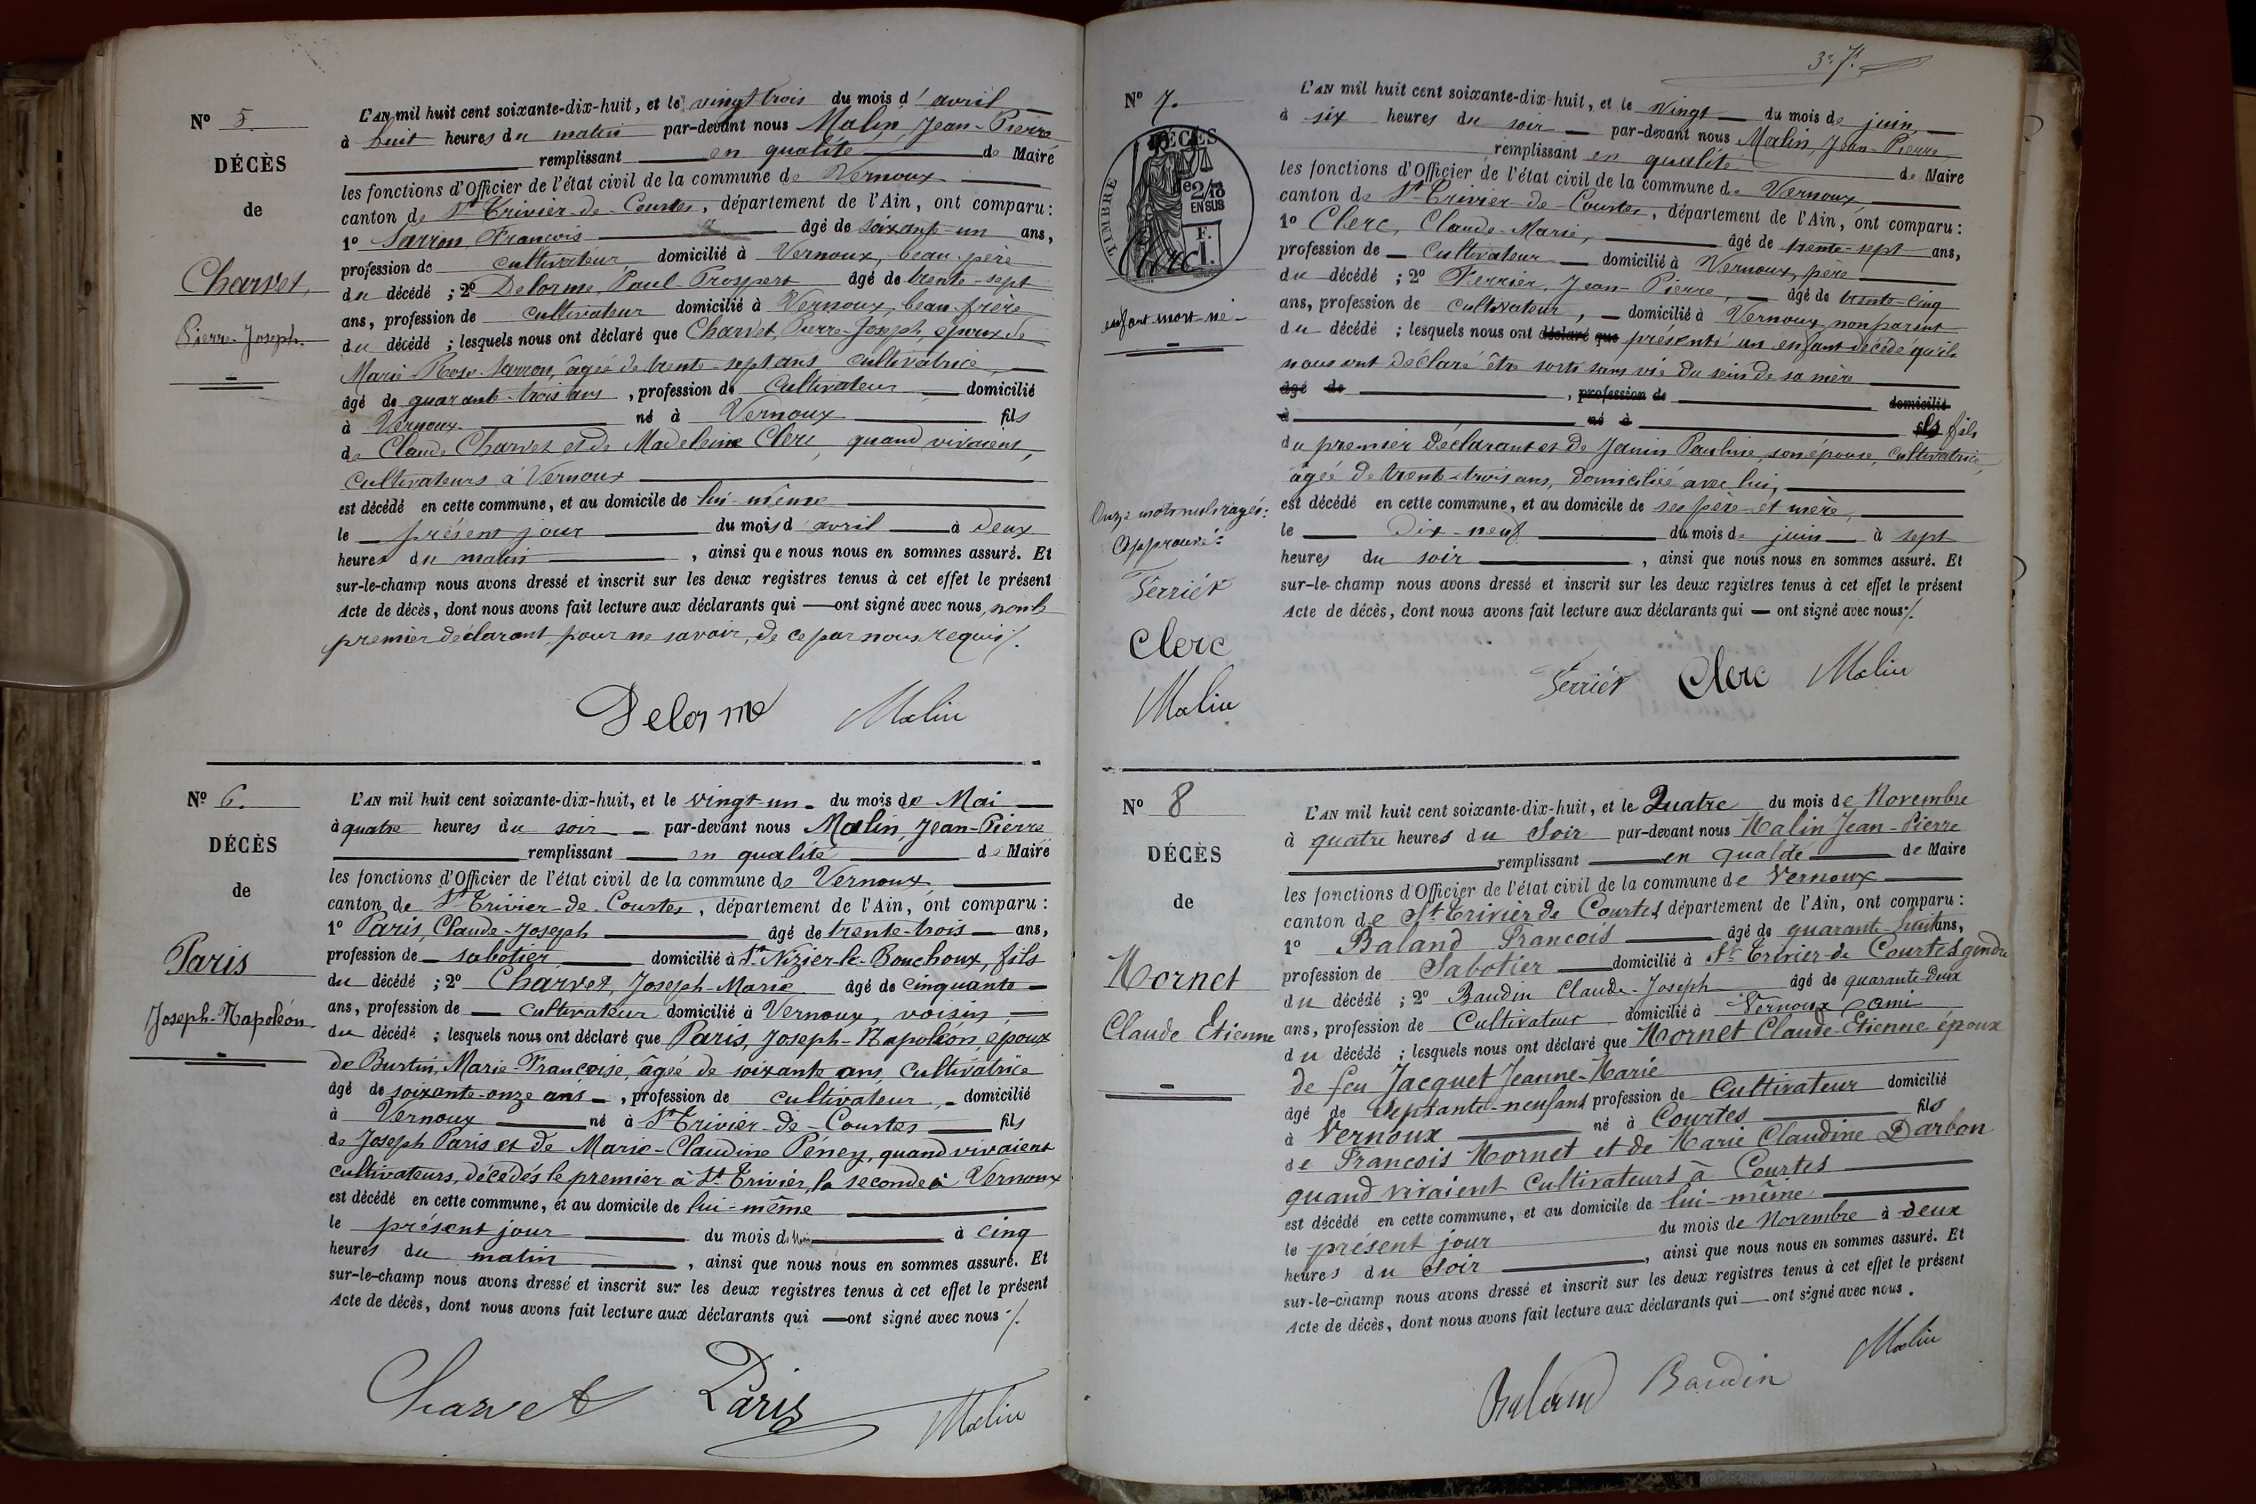 Nº 5.
DÉCÈS
de
Charvet,
Pierre-Joseph.
L'AN mil huit cent soixante-dix-huit, et le vingt trois du mois d'avril
à huit heures du matin par-devant nous Malin, Jean-Pierre
remplissant en qualité de Maire
les fonctions d'Officier de l'état civil de la commune de Vernoux
canton de St Trivier-de-Courtes, département de l'Ain, ont comparu :
1º Sarron, François âgé de soixante-un ans,
profession de cultivateur domicilié à Vernoux, beau-père
du décédé ; 2º Delorme, Paul Prospert âgé de trente-sept
ans, profession de cultivateur domicilié à Vernoux, beau-frère
du décédé ; lesquels nous ont déclaré que Charvet, Pierre-Joseph, époux de
Marie Rose Sarron, âgée de trente-sept ans cultivatrice
âgé de quarante-trois ans, profession de cultivateur domicilié
à Vernoux né à Vernoux fils
de Claude Charvet et de Madeleine Clerc, quand vivaient,
cultivateurs à Vernoux
est décédé en cette commune, et au domicile de lui-même
le présent jour du mois d'avril à deux
heures du matin, ainsi que nous nous en sommes assuré. Et
sur-le-champ nous avons dressé et inscrit sur les deux registres tenus à cet effet le présent
Acte de décès, dont nous avons fait lecture aux déclarants qui ont signé avec nous, non le
premier déclarant pour ne savoir, de ce par nous requis /.
Delorme Malin
Nº 6.
DÉCÈS
de
Paris
Joseph-Napoléon
L'AN mil huit cent soixante-dix-huit, et le vingt-un du mois de Mai
à quatre heures du soir par-devant nous Malin, Jean-Pierre
remplissant en qualité de Maire
les fonctions d'Officier de l'état civil de la commune de Vernoux
canton de St Trivier-de-Courtes, département de l'Ain, ont comparu :
1º Paris, Claude-Joseph âgé de trente-trois ans,
profession de sabotier domicilié à St Nizier-le-Bouchoux, fils
du décédé ; 2º Charvet, Joseph-Marie âgé de cinquante
ans, profession de cultivateur domicilié à Vernoux, voisin
du décédé ; lesquels nous ont déclaré que Paris, Joseph-Napoléon, époux
de Burtin, Marie-Françoise, âgée de soixante ans, cultivatrice
âgé de soixante-onze ans, profession de cultivateur, domicilié
à Vernoux né à St Trivier-de-Courtes fils
de Joseph Paris et de Marie-Claudine Péney, quand vivaient
cultivateurs, décédés le premier à St Trivier, la seconde à Vernoux
est décédé en cette commune, et au domicile de lui-même
le présent jour du mois de Mai à cinq
heures du matin, ainsi que nous nous en sommes assuré. Et
sur-le-champ nous avons dressé et inscrit sur les deux registres tenus à cet effet le présent
Acte de décès, dont nous avons fait lecture aux déclarants qui ont signé avec nous /.
Charvet Paris Malin
3e 7t.
Nº 7.
DÉCÈS
TIMBRE
2/10
EN SUS
F.
1.
Clerc
enfant mort-né
Onze mots nuls rayés :
Approuvé :
Ferrier
Clerc
Malin
L'AN mil huit cent soixante-dix-huit, et le vingt du mois de juin
à six heures du soir par-devant nous Malin, Jean-Pierre,
remplissant en qualité de Maire
les fonctions d'Officier de l'état civil de la commune de Vernoux
canton de St Trivier-de-Courtes, département de l'Ain, ont comparu :
1º Clerc, Claude-Marie, âgé de trente-sept ans,
profession de cultivateur domicilié à Vernoux, père
du décédé ; 2º Ferrier, Jean-Pierre, âgé de trente-cinq
ans, profession de cultivateur, domicilié à Vernoux, non parent
du décédé ; lesquels nous ont déclaré que présenté un enfant décédé qu'ils
nous ont déclaré être sorti sans vie du sein de sa mère
âgé de, profession de domicilié
à né à fils fils
du premier déclarant et de Janin Pauline, son épouse, cultivatrice,
âgée de trente-trois ans, domiciliée avec lui,
est décédé en cette commune, et au domicile de ses père et mère,
le dix-neuf du mois de juin à sept
heures du soir, ainsi que nous nous en sommes assuré. Et
sur-le-champ nous avons dressé et inscrit sur les deux registres tenus à cet effet le présent
Acte de décès, dont nous avons fait lecture aux déclarants qui ont signé avec nous /.
Ferrier Clerc Malin
Nº 8
DÉCÈS
de
Mornet
Claude Etienne
L'AN mil huit cent soixante-dix-huit, et le Quatre du mois de Novembre
à quatre heures du Soir par-devant nous Malin Jean-Pierre
remplissant en qualité de Maire
les fonctions d'Officier de l'état civil de la commune de Vernoux
canton de St Trivier de Courtes département de l'Ain, ont comparu :
1º Baland François âgé de quarante-huit ans,
profession de Sabotier domicilié à St Trivier de Courtes gendre
du décédé ; 2º Baudin Claude-Joseph âgé de quarante Deux
ans, profession de Cultivateur domicilié à Vernoux ami
du décédé ; lesquels nous ont déclaré que Mornet Claude-Etienne époux
de feu Jacquet Jeanne-Marie
âgé de septante-neuf ans profession de Cultivateur domicilié
à Vernoux né à Courtes fils
de François Mornet et de Marie Claudine Darbon
quand vivaient cultivateurs à Courtes
est décédé en cette commune, et au domicile de lui-même
le présent jour du mois de Novembre à deux
heures du Soir, ainsi que nous nous en sommes assuré. Et
sur-le-champ nous avons dressé et inscrit sur les deux registres tenus à cet effet le présent
Acte de décès, dont nous avons fait lecture aux déclarants qui ont signé avec nous.
Baland Baudin Malin